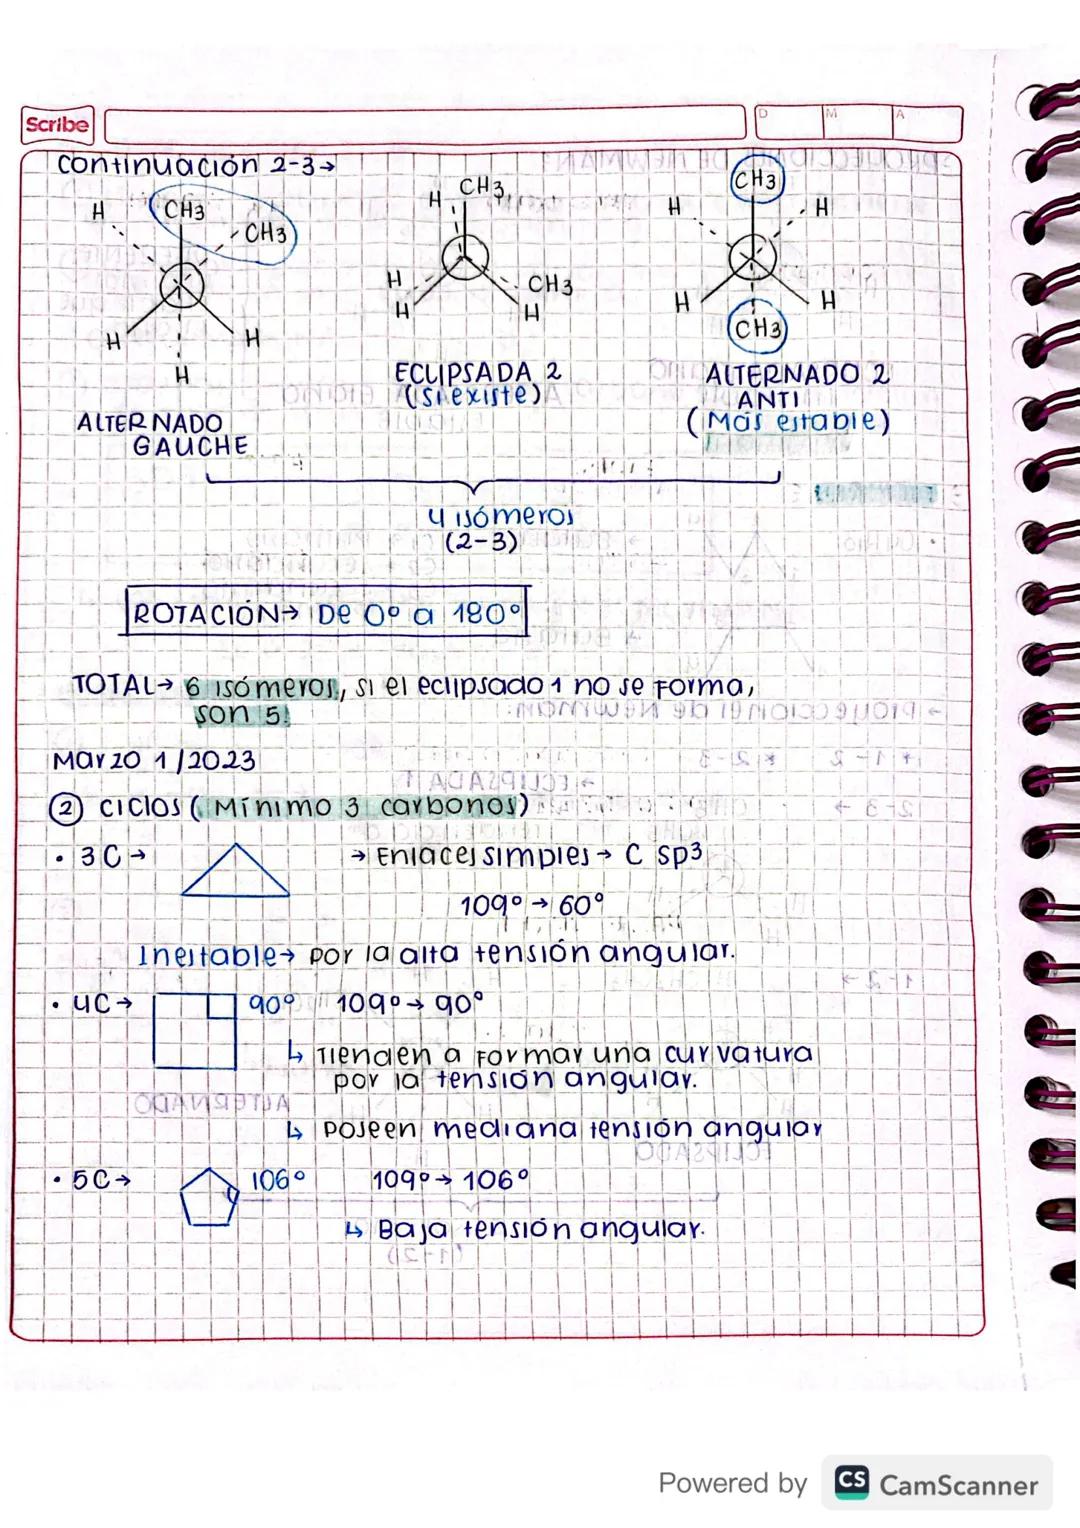 Scribe
D M A
Continuación 2-3→
H CH3 CH3 H H H
H CH3 H CH3 H H
CH3 H H H H CH3
ALTERNADO
GAUCHE
ECLIPSADA 2
(Si existe)
ALTERNADO 2
ANTI
(Más estable)
4 isómeros
(2-3)
ROTACIÓN→ De 0° a 180°
TOTAL→ 6 isómeros, si el eclipsado 1 no se forma,
son 5.
Marzo 1/2023
② Ciclos (Mínimo 3 carbonos)
• 3C→ → Enlaces simples→ C sp3
109°→60°
Inestable→ por la alta tensión angular.
• 4C→ 90° 109°→ 90°
↳ Tienden a formar una curvatura
por la tensión angular.
↳ Poseen mediana tensión angular
• 5C→ 106° 109°→ 106°
↳ Baja tensión angular.
Powered by CS CamScanner